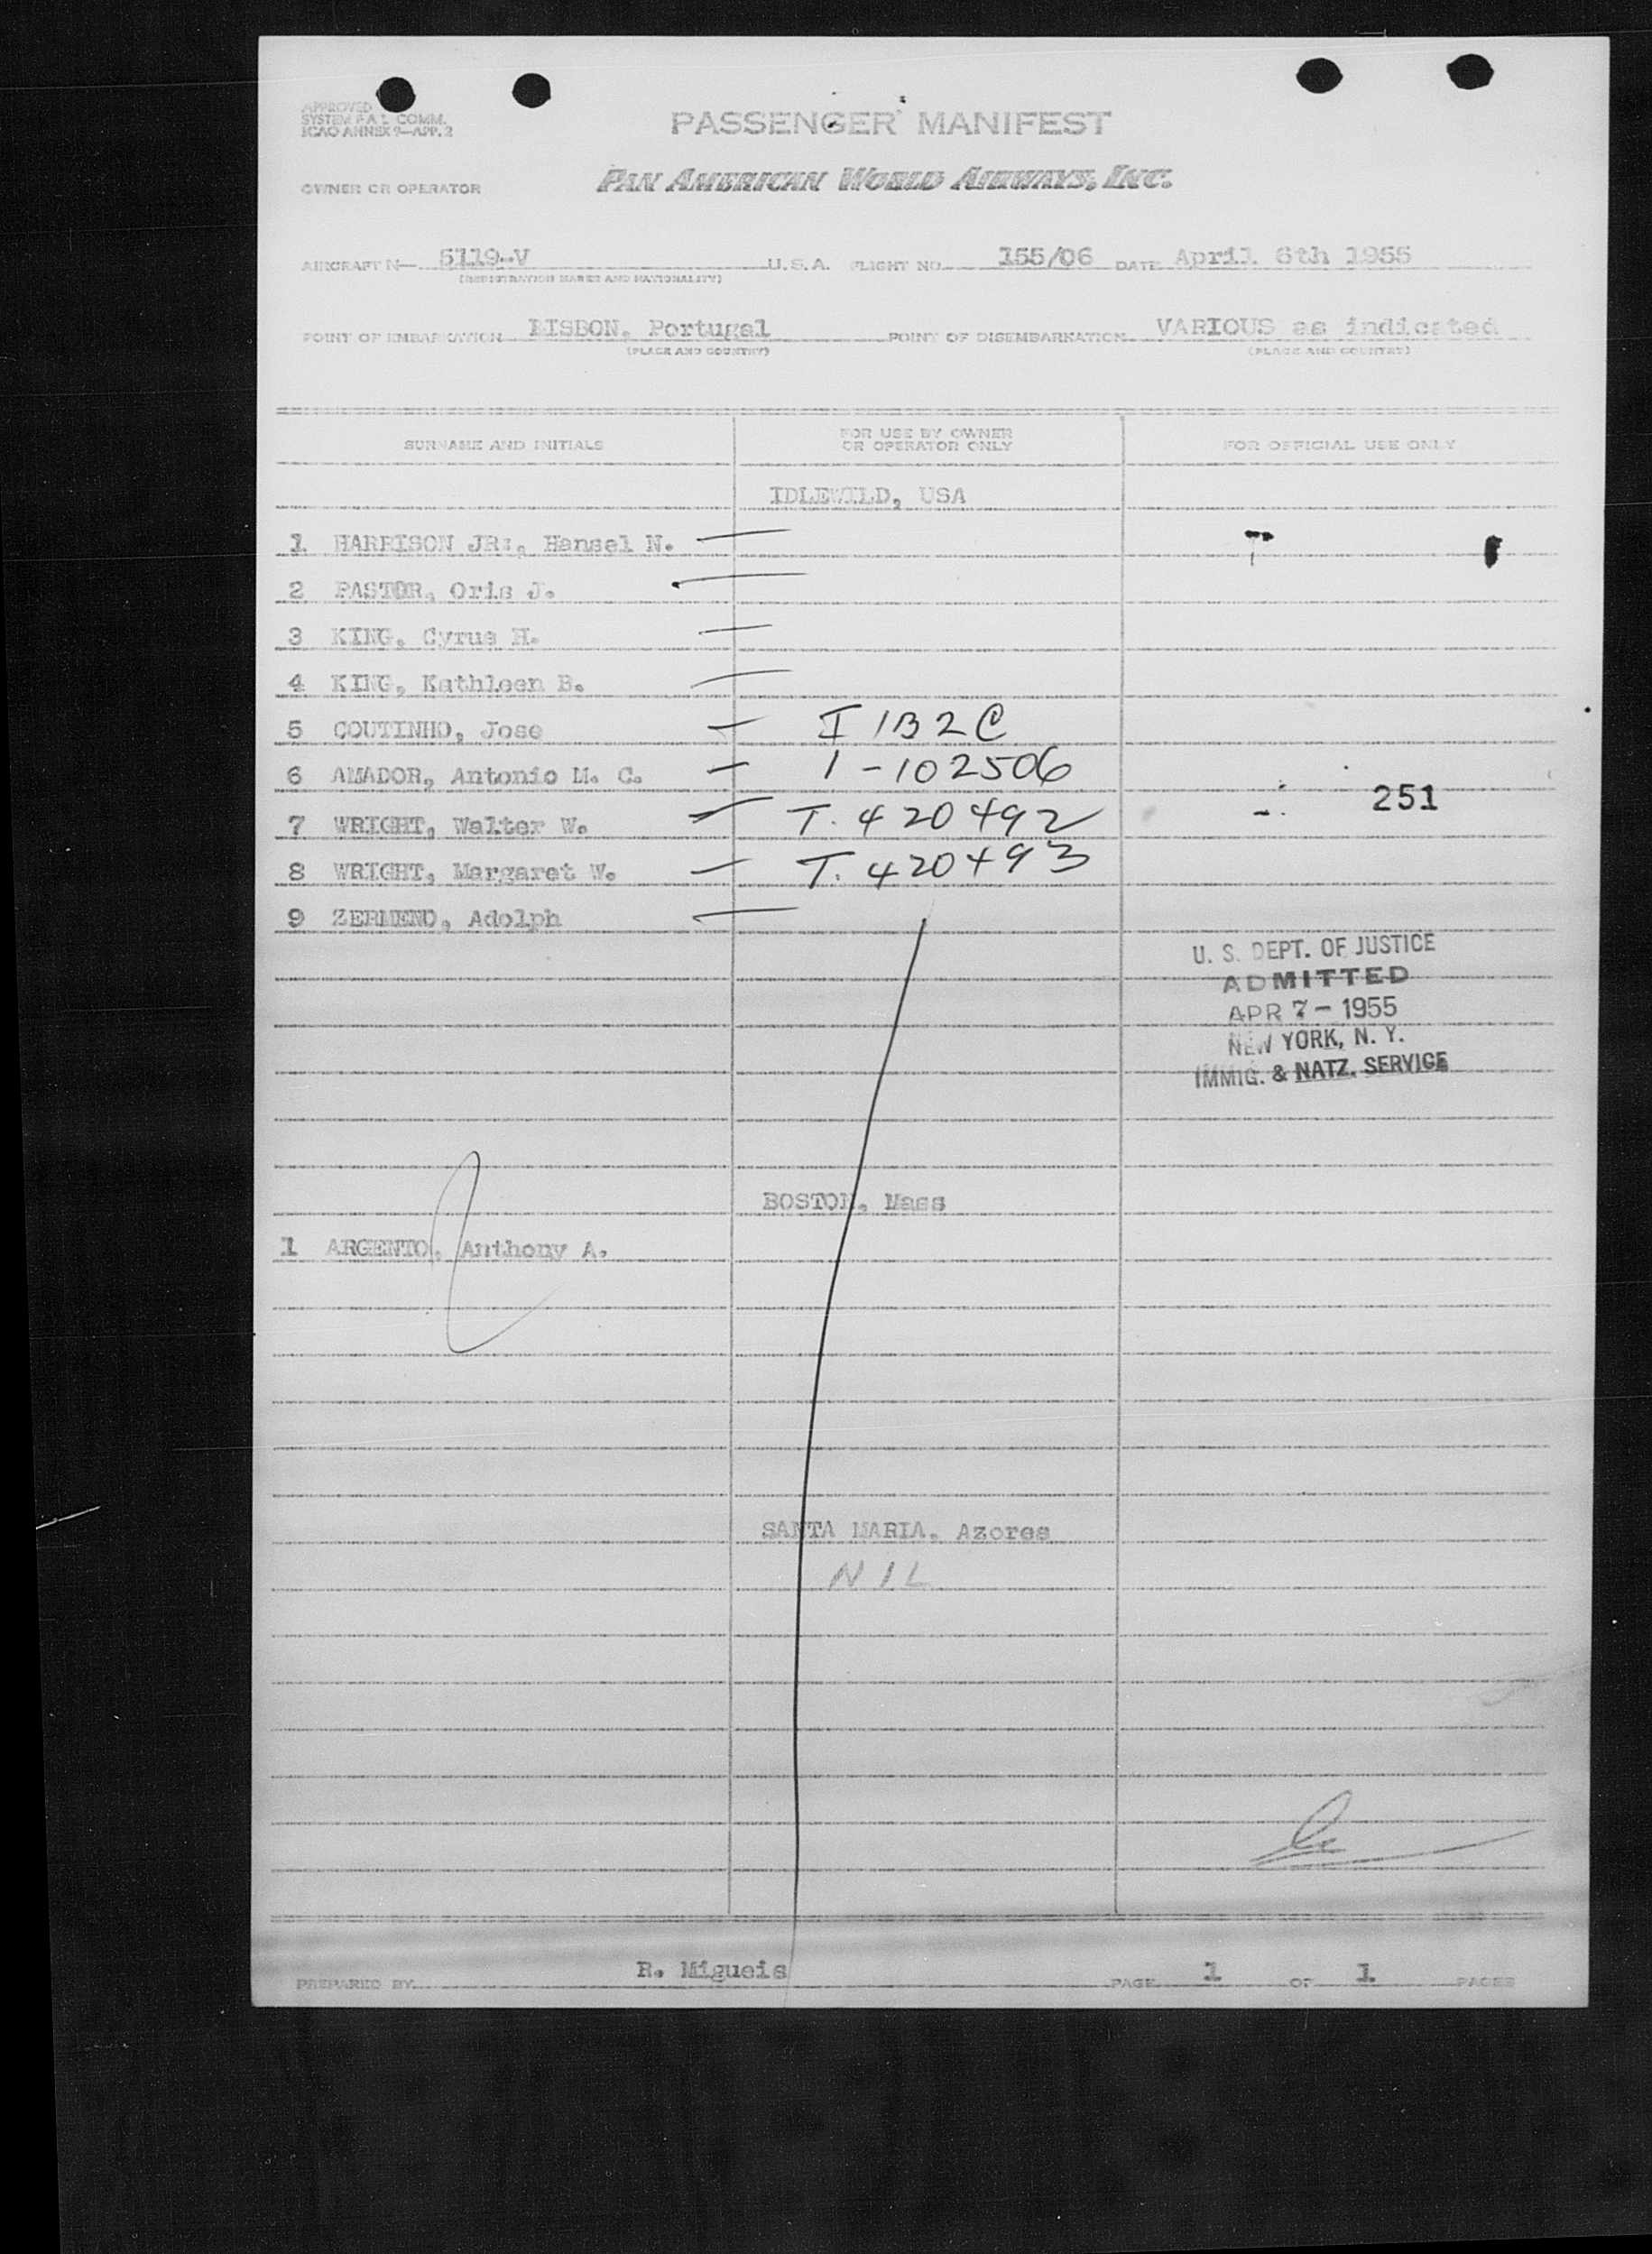 APPROVED
SYSTEM F.A.L. COMM.
ICAO ANNEX 9—APP. 2
PASSENGER MANIFEST
OWNER OR OPERATOR PAN AMERICAN WORLD AIRWAYS, INC.
AIRCRAFT N— 5119-V U.S.A. FLIGHT NO. 155/06 DATE April 6th 1955
(REGISTRATION MARKS AND NATIONALITY)
POINT OF EMBARKATION LISBON, Portugal POINT OF DISEMBARKATION VARIOUS as indicated
(PLACE AND COUNTRY) (PLACE AND COUNTRY)
SURNAME AND INITIALS FOR USE BY OWNER OR OPERATOR ONLY FOR OFFICIAL USE ONLY
IDLEWILD, USA
1 HARRISON JR:, Hansel N. —
2 PASTOR, Oris J. —
3 KING, Cyrus H. —
4 KING, Kathleen B. —
5 COUTINHO, Jose — I 1B2C
6 AMADOR, Antonio M. C. — 1-102506
251
7 WRIGHT, Walter W. — T. 420492
8 WRIGHT, Margaret W. — T. 420493
9 ZERMENO, Adolph —
U. S. DEPT. OF JUSTICE
ADMITTED
APR 7 - 1955
NEW YORK, N. Y.
IMMIG. & NATZ. SERVICE
BOSTON, Mass
1 ARGENTO, Anthony A.
SANTA MARIA, Azores
NIL
PREPARED BY R. Migueis PAGE 1 OF 1 PAGES